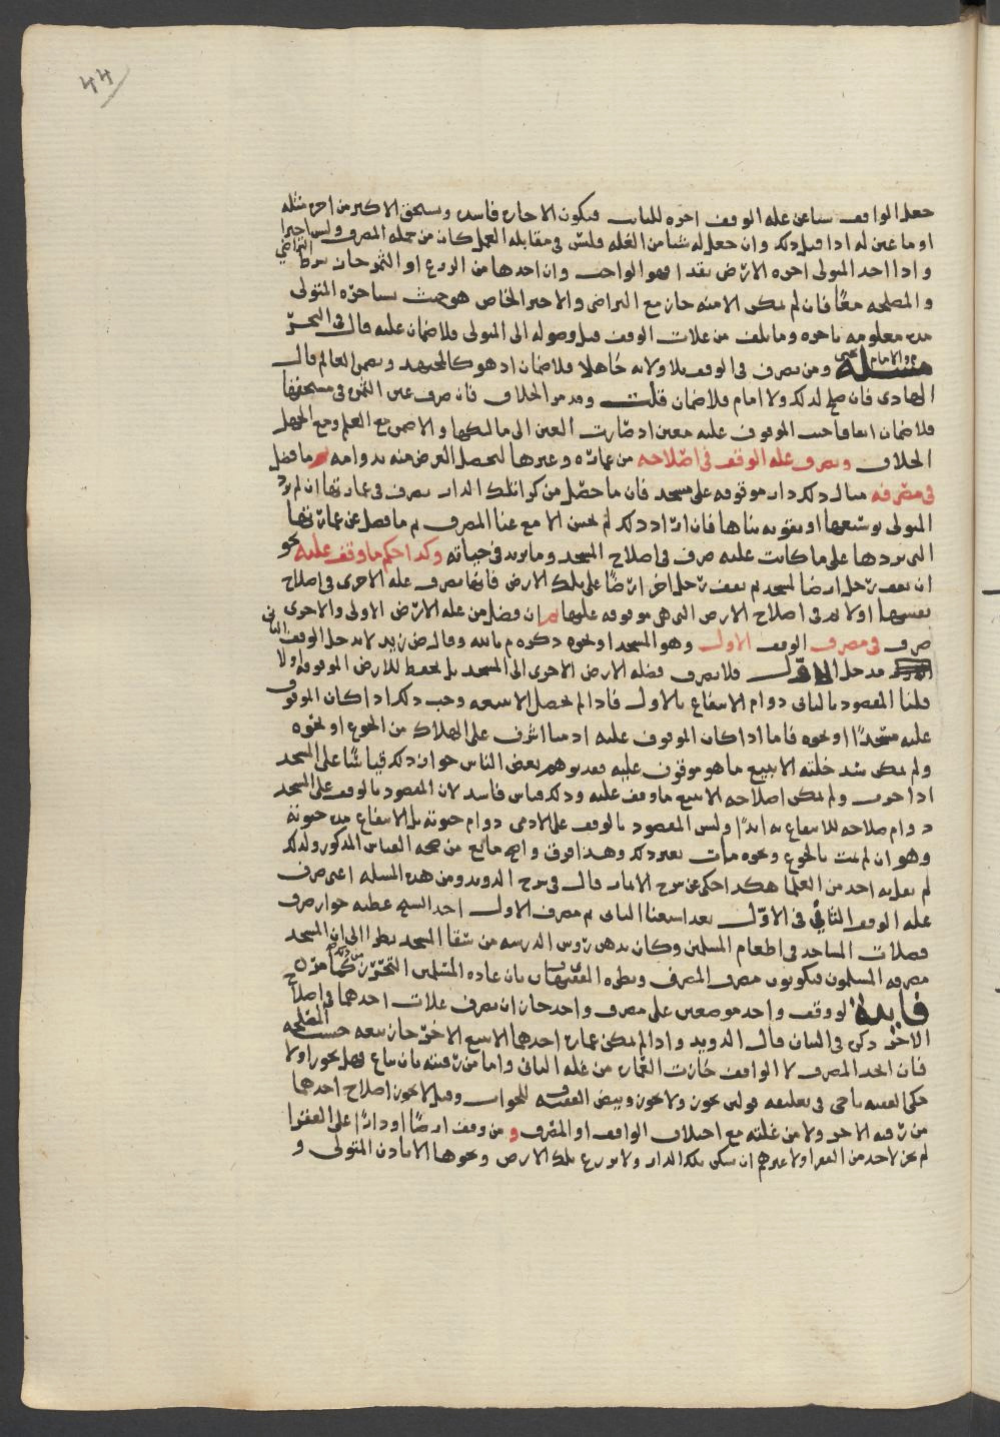 ٤٤
جعل الواقف شيا من غله الوقف اجره للبات فيكون الاجاره فاسده ويستحق الاكثر من اجره مثله
او ما عين له اذا قبل ذلك وان جعل له شيا من الغله وليس في مقابله العمل كان من جمله المصرف وليس اجيرا
واذا اخذ المتولى اجره الارض نقدا فهو الواجب وان اخذها من الزرع او الثمر جاز بشرط التراضي
والمصلحه معًا فان لم تكن الا منه جاز مع التراضى والاجير الخاص هو حيث يستاجره المتولى
مده معلومه باجره وما تلف من غلات الوقف قبل وصوله الى المتولى فلا ضمان عليه قال في البحر
مسئلة ومن تصرف في الوقف بلا ولايه جاهلا فلا ضمان اذ هو كالمجتهد ويضمن العالم قال
والامام يحيى
الهادى فان صلح لذلك ولا امام فلا ضمان قلت وقد مر الخلاف فان صرف عين الثمره في مستحقها
فلا ضمان اتفاقا حيث الموقوف عليه معين اذ صارت العين الى مالكها والا ضمن مع العلم ومع الجهل
الخلاف وتصرف غله الوقف في اصلاحه من عمارته وغيرها ليحصل الغرض منه بدوامه ثم ما فضل
في مصرفه مثال ذلك دار موقوفه على مسجد فان ما حصل من كرا تلك الدار يصرف في عمارتها ان لم يرد
المتولى توسيعها او تقويه بناها فان اراد ذلك لم يحسن الا مع غنا المصرف ثم ما فضل عن عمارتها
التى تردها على ما كانت عليه صرف في اصلاح المسجد وما يزيد في حياته وكذا حكم ما وقف عليه نحو
ان يقف رجل ارضا لمسجد ثم يقف رجل اخر ارضًا على تلك الارض فانها تصرف غله الاخرى في اصلاح
نفسها اولا ثم في اصلاح الارض التى هى موقوفه عليها ثم ان فضل من غله الارض الاولى والاخرى
صرف في مصرف الوقف الاول وهو المسجد او نحوه ذكره م بالله وقال ض زيد لا يدخل الوقف الثانى
قد دخل الاول فلا يصرف فضله الارض الاخرى الى المسجد بل يحفظ للارض الموقوفه ولا
قلنا المقصود بالثانى دوام الانتفاع بالاول فاذا لم يحصل الا ببيعه وجب ذلك اذا كان الموقوف
عليه مسجدًا او نحوه فاما اذا كان الموقوف عليه ادميا اشرف على الهلاك من الجوع او نحوه
ولم يمكن سد خلته الا ببيع ما هو موقوف عليه فقد توهم بعض الناس جواز ذلك قياسًا على المسجد
اذا خرب ولم يمكن اصلاحه الا ببيع ما وقف عليه وذلك قياس فاسد لان المقصود بالوقف على المسجد
دوام صلاحه للانتفاع به ابدًا وليس المقصود بالوقف على الادمى دوام حيوته بل الانتفاع مده حيوته
وهو ان لم يمت بالجوع ونحوه مات بغير ذلك وهذا فرق واضح مانع من صحه القياس المذكور ولذلك
لم يقل به احد من العلما هكذا حكى عن شرح الاثمار قال في شرح الدويد ومن هذه المسله اعنى صرف
غله الوقف الثاني في الاول بعد استغنا الثانى ثم مصرف الاول اخذ الشيخ عطيه جواز صرف
فضلات المساجد في اطعام المسلمين وكان يدهن روس الدرسه من سقا المسجد نظرا الى ان المسجد
مصرفه المسلمون فيكونون مصرف المصرف ونظره الفقيهان بان عاده المسلمين التحرز من ذلك كما مر
فايدة لو وقف واحد موضعين على مصرف واحد جاز ان تصرف غلات احدهما في اصلاح
الاخر ذكره في البيان قال الدويد واذا لم يمكن عماره احدهما الا ببيع الاخر جاز بيعه حسب المصلحه
فان اتحد المصرف لا الواقف جازت العماره من غله الثانى واما من رقبته بان يباع فهل يجوز او لا
حكى الفقيه ناجى في تعليقه قولين يجوز ولا يجوز وبيض الفقيه ف للجواب وقيل لا يجوز اصلاح احدهما
من رقبه الاخر ولا من غلته مع اختلاف الواقف او المصرف و من وقف ارضًا او دارًا على الفقرا
لم يجز لاحد من الفقرا ولا غيرهم ان يسكن تلك الدار ولا يزرع تلك الارض ونحوها الا باذن المتولى و